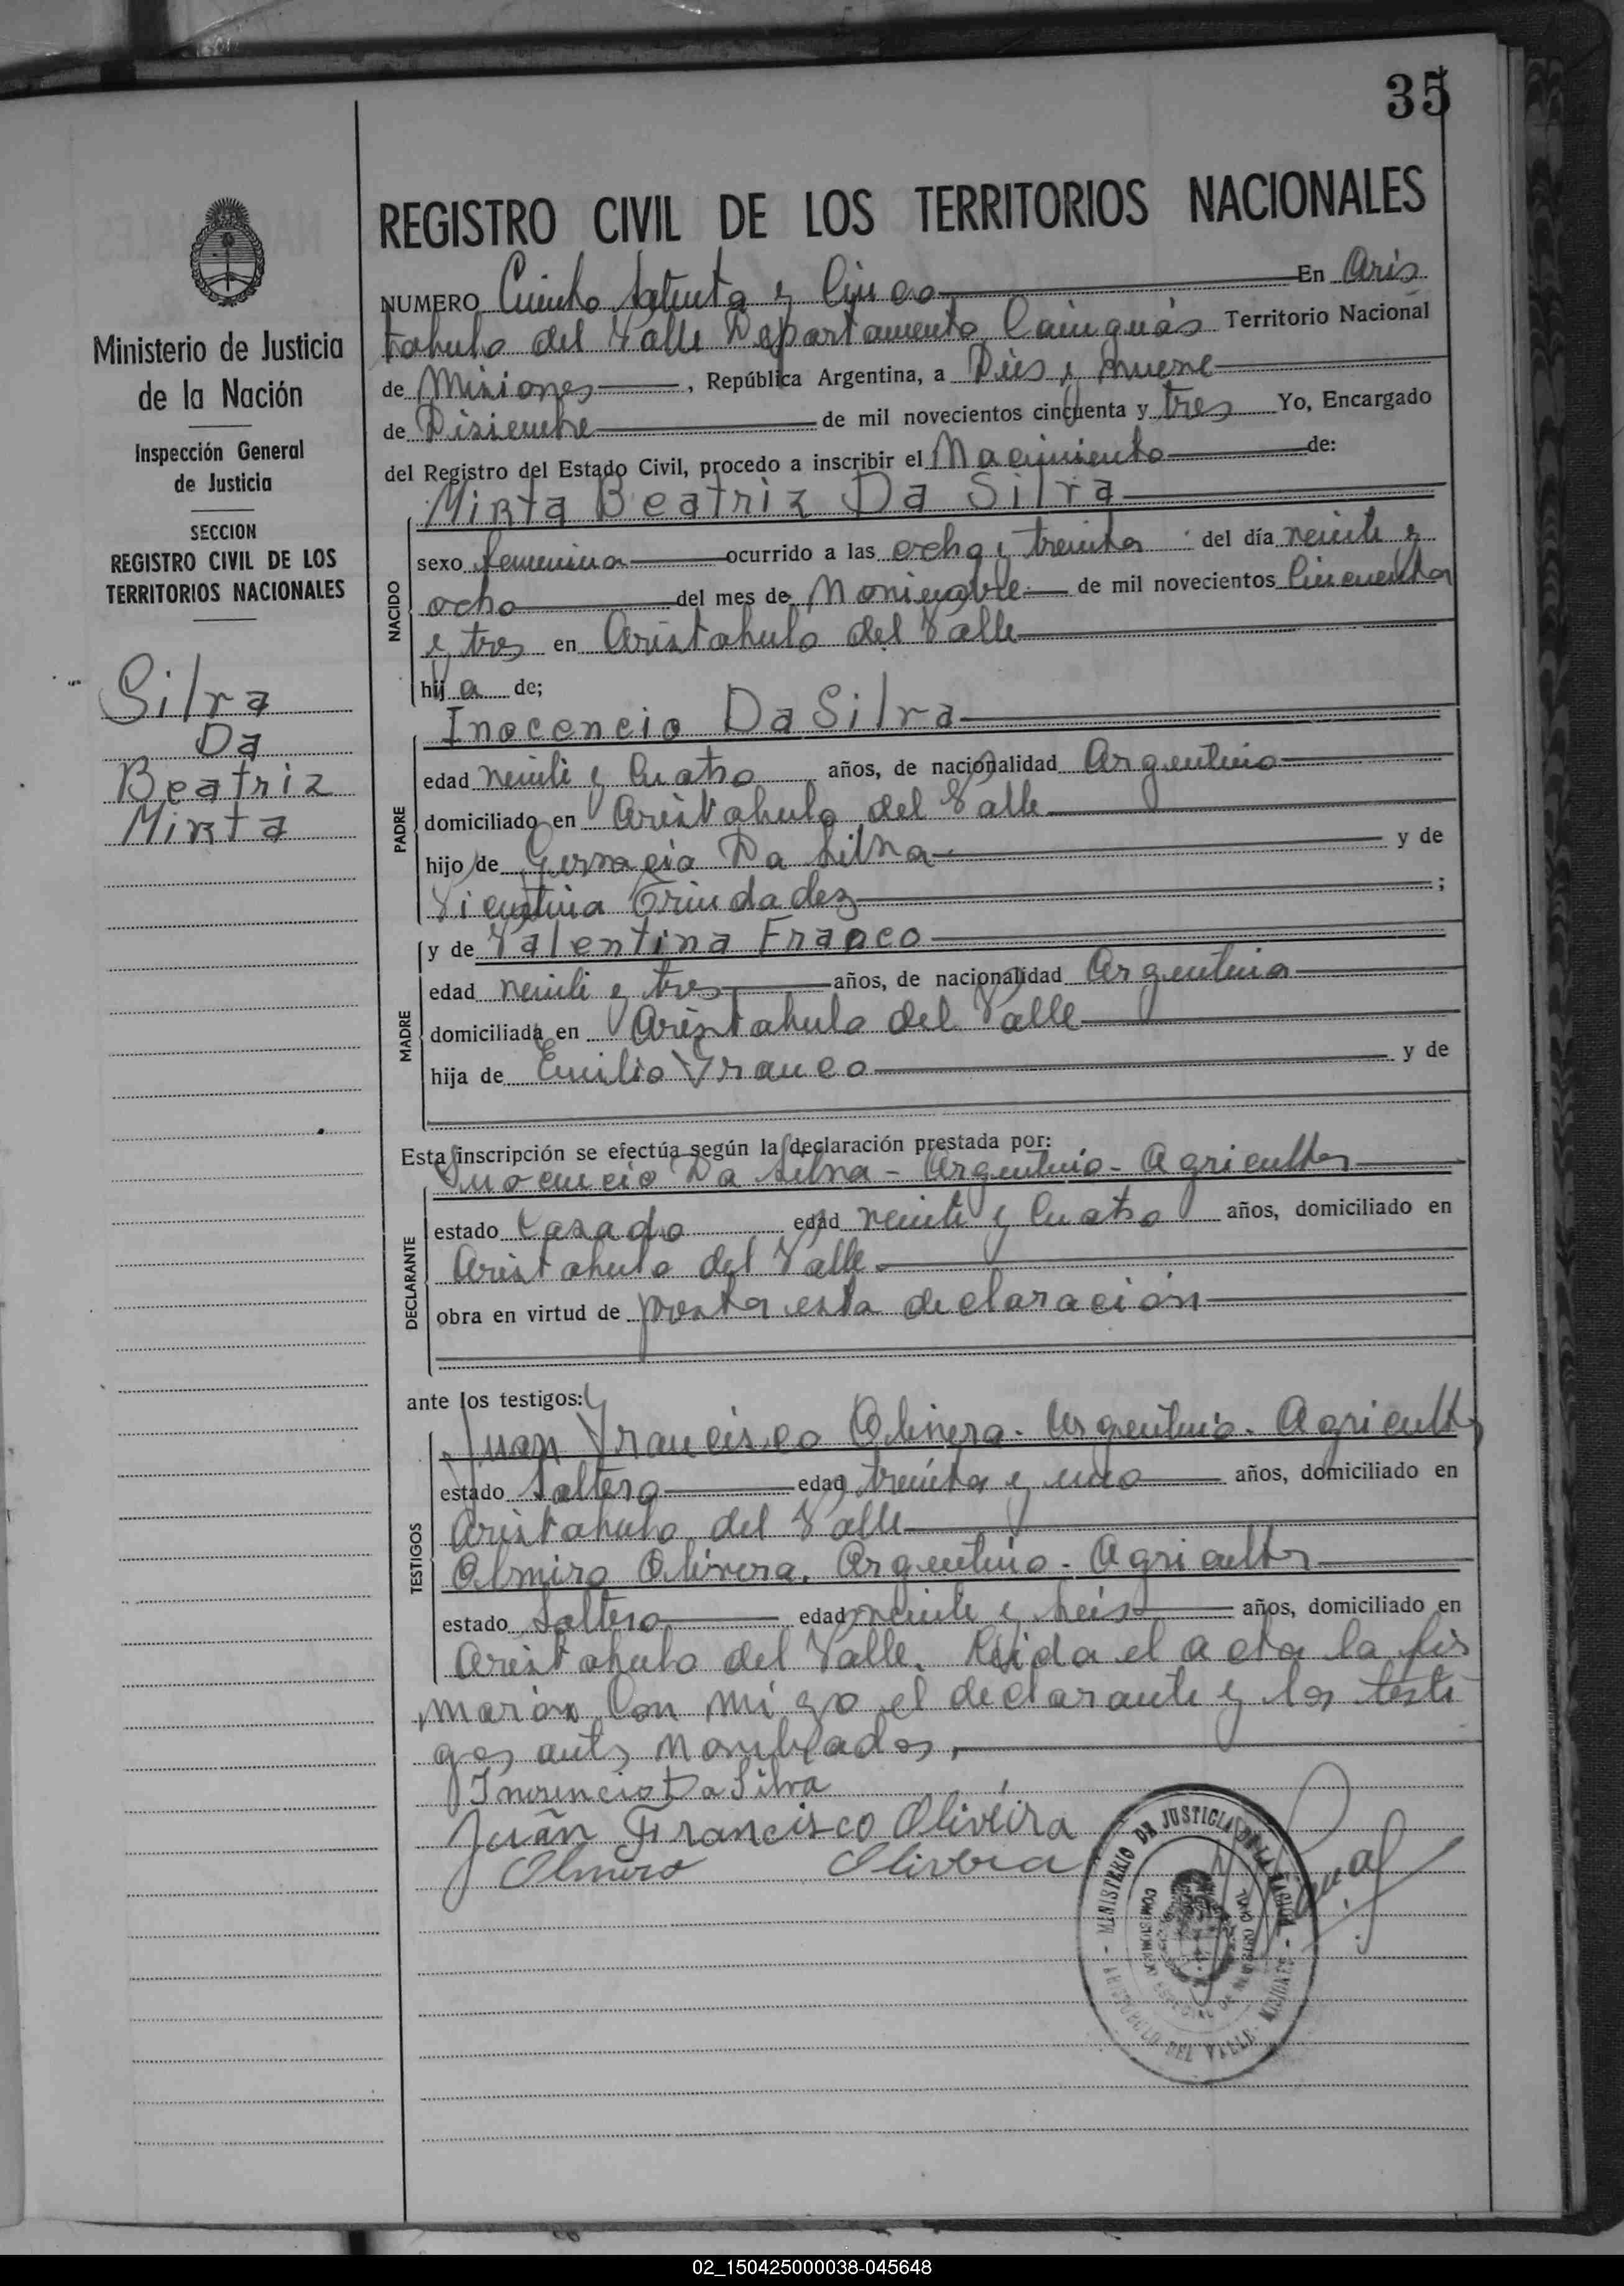 35
REGISTRO CIVIL DE LOS TERRITORIOS NACIONALES
Ministerio de Justicia
de la Nación
Inspección General
de Justicia
SECCION
REGISTRO CIVIL DE LOS
TERRITORIOS NACIONALES
Silva
Da
Beatriz
Mirta
NUMERO Ciento setenta y Cinco En Aris
tobulo del Valle Departamento Cainguás Territorio Nacional
de Misiones, República Argentina, a Dies y nueve
de Disiembre de mil novecientos cincuenta y tres Yo, Encargado
del Registro del Estado Civil, procedo a inscribir el Nacimiento de:
Mirta Beatriz Da Silva
NACIDO
sexo femenina ocurrido a las ocho y treinta del día veinte y
ocho del mes de Noviembre de mil novecientos Cincuenta
y tres en Aristobulo del Valle
hija de;
Inocencio Da Silva
PADRE
edad veinte y Cuatro años, de nacionalidad Argentino
domiciliado en Aristobulo del Valle
hijo de Gervacio Da Silva y de
Vicentina Trindadez;
y de Valentina Franco
MADRE
edad veinte y tres años, de nacionalidad Argentina
domiciliada en Aristobulo del Valle
hija de Emilio Franco y de
Esta inscripción se efectúa según la declaración prestada por:
Inocencio Da Silva - Argentino - Agricultor
DECLARANTE
estado Casado edad veinte y Cuatro años, domiciliado en
Aristobulo del Valle
obra en virtud de prestar esta declaración
ante los testigos:
Juan Francisco Olivera. Argentino. Agricultor
TESTIGOS
estado Soltero edad treinta y uno años, domiciliado en
Aristobulo del Valle
Olmiro Olivera. Argentino - Agricultor
estado Soltero edad veinte y seis años, domiciliado en
Aristobulo del Valle. Leida el acta la fir
maron Con migo el declarante y los testi
gos antes Nombrados.
Inosencio Da Silva
Juan Francisco Oliveira
Olmiro Olivera
MINISTERIO DE JUSTICIA DE LA NACION
ARISTOBULO DEL VALLE - MISIONES
02_150425000038-045648